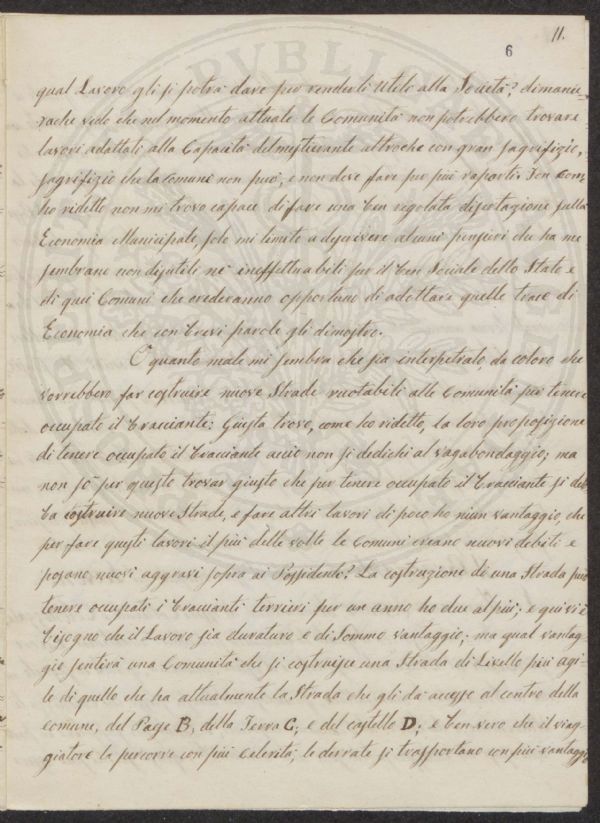 11.
6
qual Lavoro gli si potrà dare per renderli Utili alla Società? dimanie-
rache vedo che nel momento attuale le Comunità non potrebbero trovare
lavori adattati alla Capacità del mestierante altroche con gran sagrifizio,
sagrifizio che la Comune non puol, e non deve fare per più raporti. Jo
ho ridetto non mi trovo capace di fare una ben regolata disertazione sulla
Economia Municipale, solo mi limito a descrivere alcuni pensieri che ha me
sembrano non disutili nè ineffettuabili per il ben Sociale dello Stato e
di quei Comuni che crederanno opportuno di adottare quelle trace di
Economia che con brevi parole gli dimostro.
O quanto male mi sembra che sia interpetrato, da coloro che
vorrebbero far costruire nuove Strade ruotabili alle Comunità per tenere
occupato il bracciante: Giusta trovo, come ho ridetto, la loro proposizione
di tenere occupato il bracciante acciò non si dedichi al vagabondaggio; ma
non sò per questo trovar giusto che per tenere occupato il bracciante si deb-
ba costruire nuove Strade, e fare altri lavori di poco ho niun vantaggio, che
per fare questi lavori il più delle volte le Comuni creano nuovi debiti e
posano nuovi aggravi sopra ai Possidente? La costruzione di una Strada può
tenere occupati i braccianti terrieri per un anno ho due al più; e qui vi è
bisogno che il Lavoro sia duraturo e di Sommo vantaggio; ma qual vantag-
gio sentirà una Comunità che si costruisse una Strada di Livello più agi-
le di quello che ha attualmente la Strada che gli dà accesso al centro della
Comune, del Paese B, della Terra C; e del castello D; e ben vero che il viag-
giatore la percorre con più celerità; le derrate si trasportano con più vantaggio